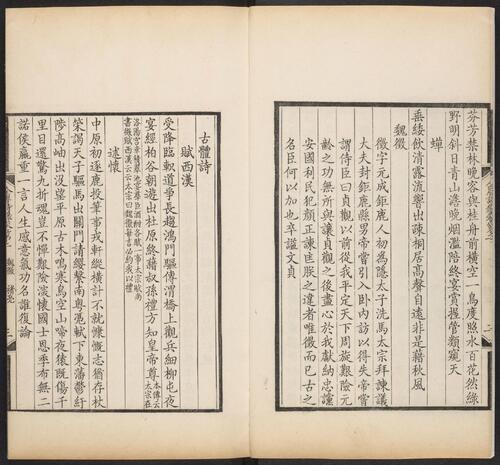 芬芳禁林晚容與桂舟前橫空一鳥度照水百花然綠
野明斜日青山澹晚煙濫陪終宴賞握管類窺天
蟬
垂緌飲清露流響出疎桐居高聲自遠非是藉秋風
魏徵
徵字元成鉅鹿人初為隱太子洗馬太宗拜諫議
大夫封鉅鹿縣男帝嘗引入臥內訪以得失帝嘗
謂侍臣曰貞觀以前從我平定天下周旋艱險元
齡之功無所與讓貞觀之後盡心於我獻納忠讜
安國利民犯顏正諫匡朕之違者唯徵而已古之
名臣何以加也卒諡文貞
古體詩
賦西漢
受降臨軹道爭長趣鴻門驅傳渭橋上觀兵細柳屯夜
宴經柏谷朝遊出杜原終藉叔孫禮方知皇帝尊本傳云太宗在
洛陽宮幸積翠池宴羣臣酒酣各賦一事太宗賦尚
書徵賦西漢云云太宗曰魏徵每言必約我以禮
述懷
中原初逐鹿投筆事戎軒縱橫計不就慷慨志猶存杖
策謁天子驅馬出關門請纓繫南粵憑軾下東藩鬱紆
陟高岫出沒望平原古木鳴寒鳥空山啼夜猿既傷千
里目還驚九折魂豈不憚艱險深懷國士恩季布無二
諾侯嬴重一言人生感意氣功名誰復論
魏徵
二